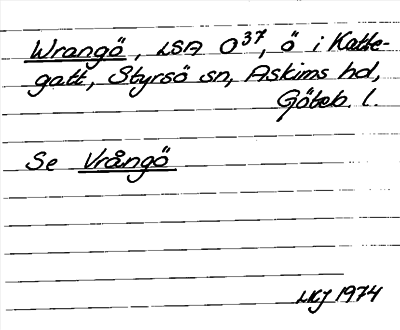 Wrangö, LSA O37, ö i Katte-
gatt, Styrsö sn, Askims hd,
Göteb. l.
Se Vrångö
LKJ 1974